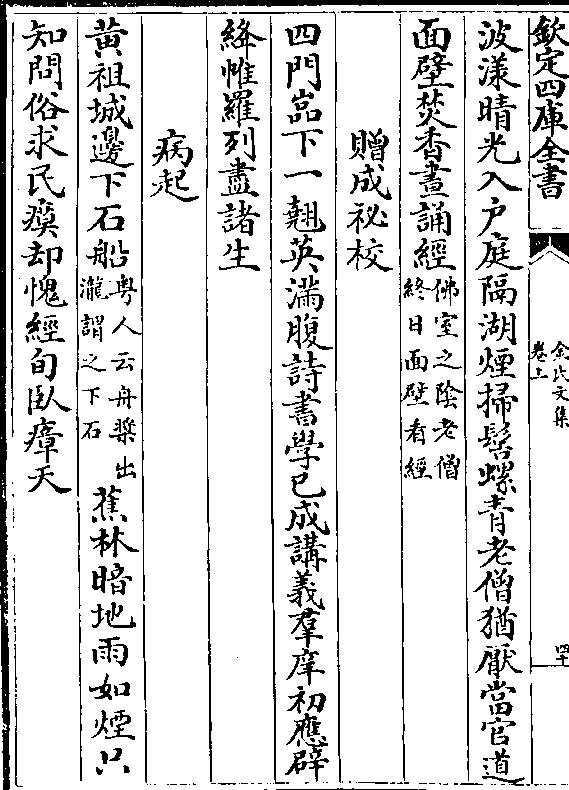 欽定四庫全書
金氏文集
卷上
四十
波漾晴光入户庭隔湖煙掃髻螺青老僧猶厭當官道
面壁焚香晝誦經
佛室之陰老僧
終日面壁看經
贈成祕校
四門嵓下一翹英滿腹詩書學已成講義羣庠初應辟
絳帷羅列盡諸生
病起
黄祖城邊下石船
粤人云舟槳出
瀧謂之下石
蕉林暗地雨如煙只
知問俗求民瘼却愧經旬臥瘴天